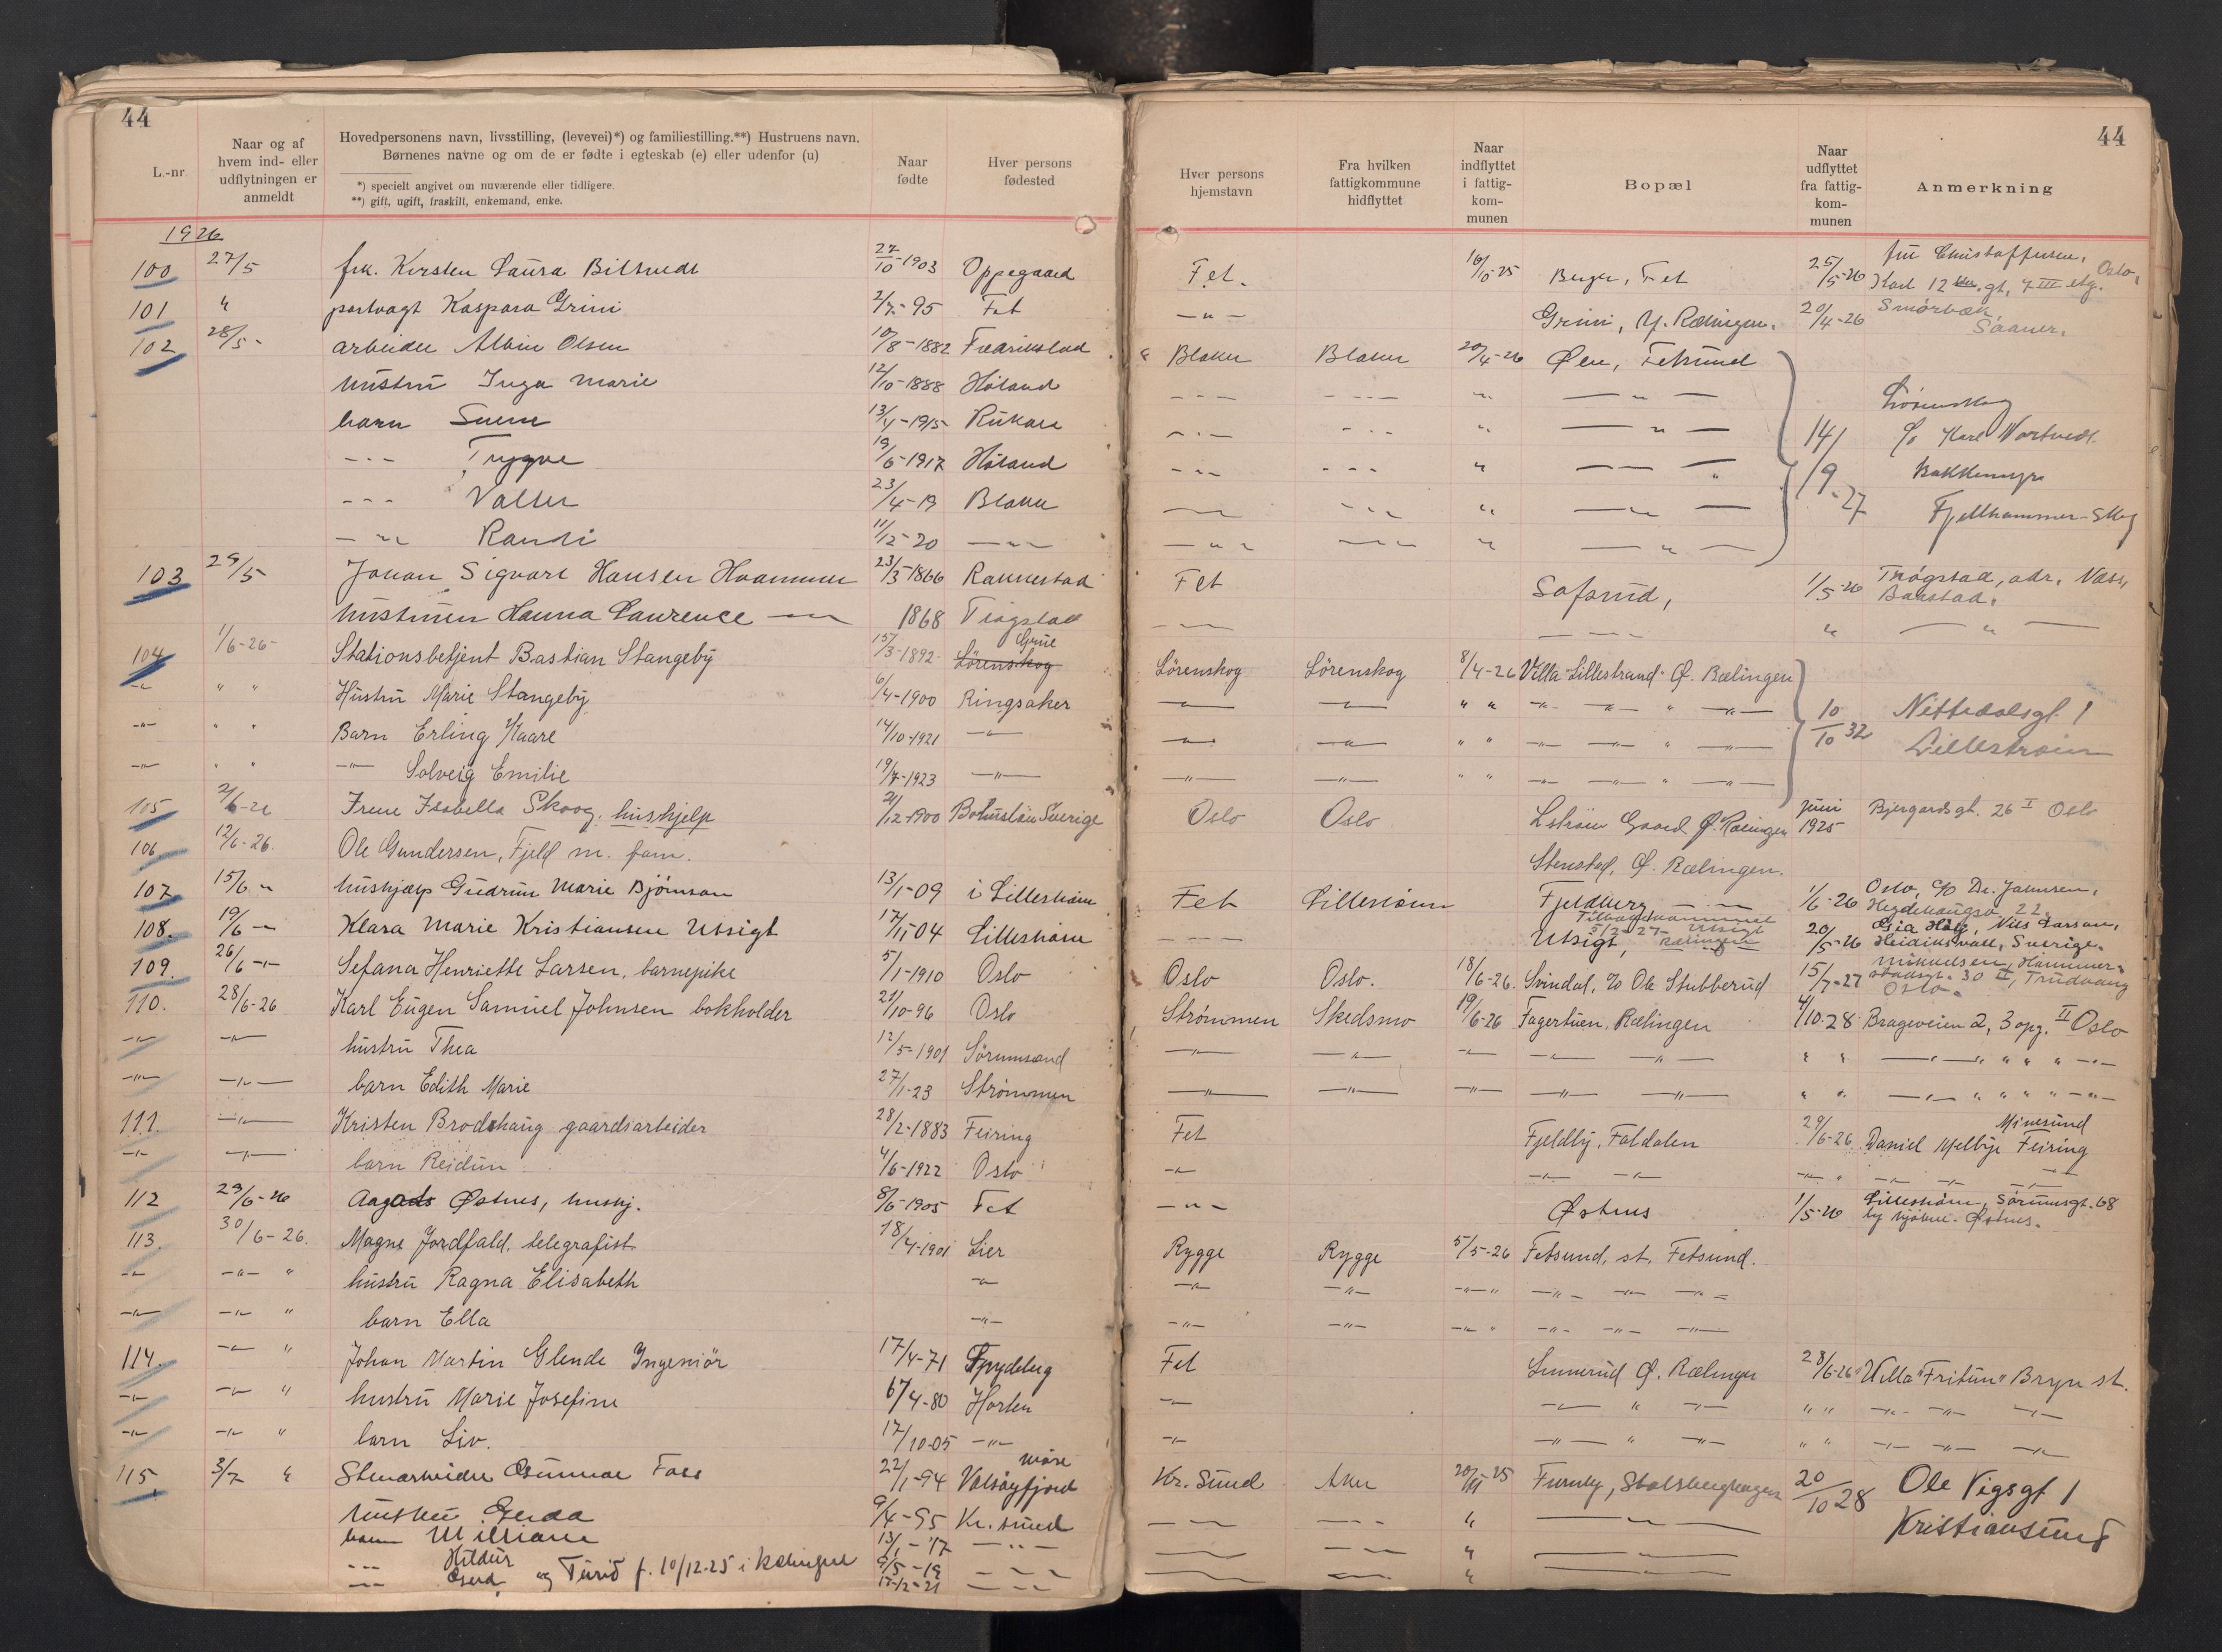 44
L.-nr.
Naar og af hvem ind- eller udflytningen er anmeldt
Hovedpersonens navn, livsstilling, (levevei)*) og familiestilling.**) Hustruens navn.
Børnenes navne og om de er fødte i egteskab (e) eller udenfor (u)
*) specielt angivet om nuværende eller tidligere.
**) gift, ugift, fraskilt, enkemand, enke.
Naar fødte
Hver persons fødested
Hver persons hjemstavn
Fra hvilken fattigkommune hidflyttet
Naar indflyttet i fattig-kom-munen
Bopæl
Naar udflyttet fra fattig-kom-munen
Anmerkning
44
1926
100 27/5 frk. Kirsten Laura 27/10-1903 Oppegaard Fet. 16/10-25 Berger, Fet 25/5-26 fru Christoffersen, Oslo,
101 " portvagt Kaspara Grini 2/7-95 Fet -"- Grini, Y. Rælingen. 20/4-26 Smørbæk, Saaner.
102 28/5- arbeider Albin Olsen 10/8-1882 Fredrikstad Blaker Blaker 20/4-26 Øen, Fetsund
hustru Inga Marie 12/10-1888 Høland --- --- " -"-
barn 13/4-1915 --- --- " -"- Lörenskog
--- Trygve 19/6-1917 Høland --- --- " -"- 14/9-27 c/o Karl Nortvedt.
--- Valter 23/4-19 Blaker --- --- " -"-
-"- Randi 11/12-20 -"- -"- --- " -"- Fjellhammer-Skog
103 29/5 Johan Sigvart Hansen Haammer 23/3-1866 Rakkestad Fet 1/5-26 Trøgstad, adr. Næss, Baastad.
hustruen Hanna Laurence -"- 1868 Trøgstad -"- --- " -"-
104 1/6-26- Stationsbetjent Bastian Stangeby 15/3-1892 Lörenskog Grue Lörenskog Lörenskog 8/4-26 Villa "Lillestrand" Ø. Rælingen
-"- " " Hustru Marie Stangeby 6/4-1900 Ringsaker -"- -"- " " -"- -"- " -"- 10/10 32 Nittedalsgt. 1
-"- " " Barn Erling Kaare 14/10-1921 -"- -"- -"- " " -"- -"- " -"- Lillestrøm
-"- " " -"- Solveig Emilie 19/7-1923 -"- -"- -"- " " -"- -"- " -"-
115 2/6-26 Irene Isabella Skoog, hushjelp 21/12-1900 Bohuslän Sverige Oslo Oslo Lstrøm Gaard Ø. Rælingen juni 1925 Bjergardsgt. 26 I Oslo
106 12/6-26. Ole Gundersen, Fjeld m. fam. Stenstad, Ø. Rælingen.
107 15/6 " hushjælp Gudrun Marie Bjørnson 13/1-09 i Lillestrøm Fet Lillestrøm Fjeldberg, -"- 1/6-26 Oslo, c/o Dr. Johnsen, Hegdehaugsv. 22.
108. 19/6 -"- Klara Marie Kristiansen Utsigt 17/11-04 Lillestrøm --- Utsigt, Rælingen 20/5-26 Nils Larsson, Sverige.
109. 26/6 -"- Sefana Henriette Larsen, barnepike 5/1-1910 Oslo Oslo Oslo. 18/6-26. Svindal, c/o Ole Stubberud 15/7-27 Mikkelsen, Hammerstadsgt. 30 II, Trudvang Oslo.
110. 28/6-26 Karl Eugen Samuel Johnsen bokholder 21/10-96 Oslo Strømmen Skedsmo 19/6-26 Fagertuen, Rælingen 4/10-28 Brageveien 2, 3 opg. II Oslo
-"- -"- hustru Thea 12/5-1901 Sørumsand -"- -"- -"- -"- -"- " " -"- " " " -"-
-"- -"- barn Edith Marie 27/1-23 Strømmen -"- -"- -"- -"- -"- " " -"- " " " -"-
111. -"- Kristen Brodshaug gaardsarbeider 28/2-1883 Feiring Fet Fjeldby, Faldalen 29/6-26 Daniel Melbye Feiring Minesund
-"- -"- barn Reidun 4/6-1922 Oslo -"- -"- -"- -"- " -"- -"- -"-
112 29/6-26 Østnes, hushj. 8/6-1905 Fet -"- Østnes 1/5-26 Lillestrøm, Sørumsgt. 68
113. 30/6-26. Magne Jordfald, telegrafist 18/4-1901 Lier Rygge Rygge 5/5-26 Fetsund. st. Fetsund.
-"- -"- " hustru Ragna Elisabeth -"- -"- -"- -"- " -"- -"- -"-
-"- -"- " barn Ella -"- -"- -"- -"- " -"- -"- -"-
114. -"- " Johan Martin Glende Ingeniör 17/4-71 Spydeberg Fet Ø. Rælingen 28/6-26 Villa "Fritun" Bryn st.
-"- -"- " hustru Marie Josefine 6/4-80 Horten -"- -"- " -"- " " -"- -"- -"-
-"- -"- " barn Liv. 17/10-05 -"- -"- -"- " -"- " " -"- -"- -"-
115. 3/7 " Stenarbeider Gunnar Foss 22/1-94 Valsøyfjord Møre Kr. Sund Aker 20/III 25 Furuly, 20/10 28 Ole Vigsgt 1
hustru Gerda 9/4-95 Kr. sund --- --- " -"- Kristiansund
barn 13/1-'17 -"- " -"-
--- Hildur 9/5-19 --- " -"-
--- og Turid f. 10/12-25 i Rælingen 15-12-21 --- "